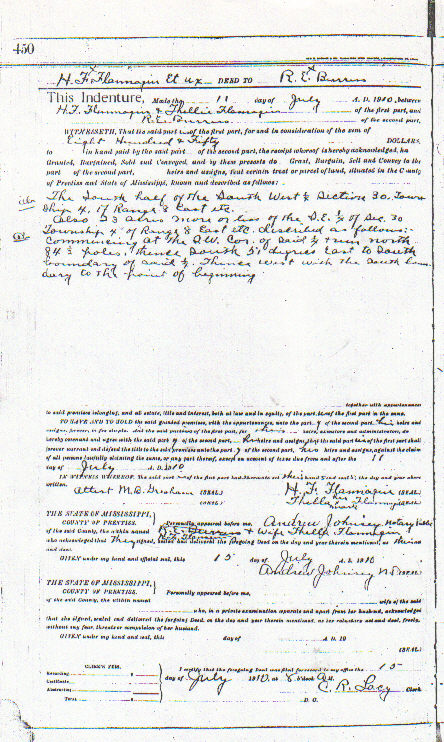 450
H. F. Flannagin Et ux DEED TO R. E. Burns
This Indenture, Made the 11 day of July A. D. 1910, between
H. F. Flannagin & Thellie Flannagin of the first part, and
R. E. Burns of the second part,
WITNESSETH, That the said part of the first part, for and in consideration of the sum of
Eight Hundred & Fifty DOLLARS,
to in hand paid by the said part of the second part, the receipt whereof is hereby acknowledged, ha
Granted, Bargained, Sold and Conveyed, and by these presents do Grant, Bargain, Sell and Convey to the
part of the second part, heirs and assigns, that certain tract or parcel of land, situated in the County
of Prentiss and State of Mississippi, known and described as follows:
The South half of the South West ¼ Section 30, Town
Ship 4, of Range 8 East etc.
Also 33 acres more or less of the S.E. ¼ of Sec. 30
Township 4 of Range 8 East etc. described as follows:-
Commencing at the S.W. Cor. of said ¼ run north
84 poles, thence South 51 degrees East to South
boundary of said ¼. Thence West with the South boun
dary to the point of beginning.
together with appurtenances
to said premises belonging, and all estate, title and interest, both at law and in equity, of the part of the first part in the same.
TO HAVE AND TO HOLD the said granted premises, with the appurtenances, unto the part y of the second part his heirs and
assigns, forever, in fee simple. And the said part of the first part, for heirs, executors and administrators, do
hereby covenant and agree with the said part y of the second part, heirs and assigns, that the said part of the first part shall
forever warrant and defend the title to the said premises unto the part y of the second part, his heirs and assigns, against the claim
of all persons lawfully claiming the same, or any part thereof, except on account of taxes due from and after the 11
day of July A. D. 1910
IN WITNESS WHEREOF, The said part of the first part hereunto set their hand and seal, the day and year above
written.
Attest M. B. Gresham (SEAL) H. F. Flannagin (SEAL)
(SEAL) Thellie Flannagin (SEAL)
THE STATE OF MISSISSIPPI,
COUNTY OF PRENTISS. Personally appeared before me, Andrew Johnsey Notary Public
of the said County, the within named & Wife Thella Flannagin
H. F. Flannagin
who acknowledged that They signed, sealed and delivered the foregoing Deed on the day and year therein mentioned, as their act
and deed.
GIVEN under my hand and official seal, this 15 day of July A. D. 1910
Andrew Johnsey N.P. (SEAL)
THE STATE OF MISSISSIPPI,
COUNTY OF PRENTISS. Personally appeared before me,
of the said County, the within named wife of the said
who, in a private examination separate and apart from her husband, acknowledged
that she signed, sealed and delivered the foregoing Deed, on the day and year therein mentioned, as her voluntary act and deed, freely,
without any fear, threats or compulsion of her husband.
GIVEN under my hand and seal, this day of A. D. 19
(SEAL)
CLERK'S FEES.
Recording $
Certificate
Abstracting
Total $
I certify that the foregoing Deed was filed for record in my office the 15
day of July 1910, at 8 o'clock A. M.
C. R. Lacy Clerk
D. C.